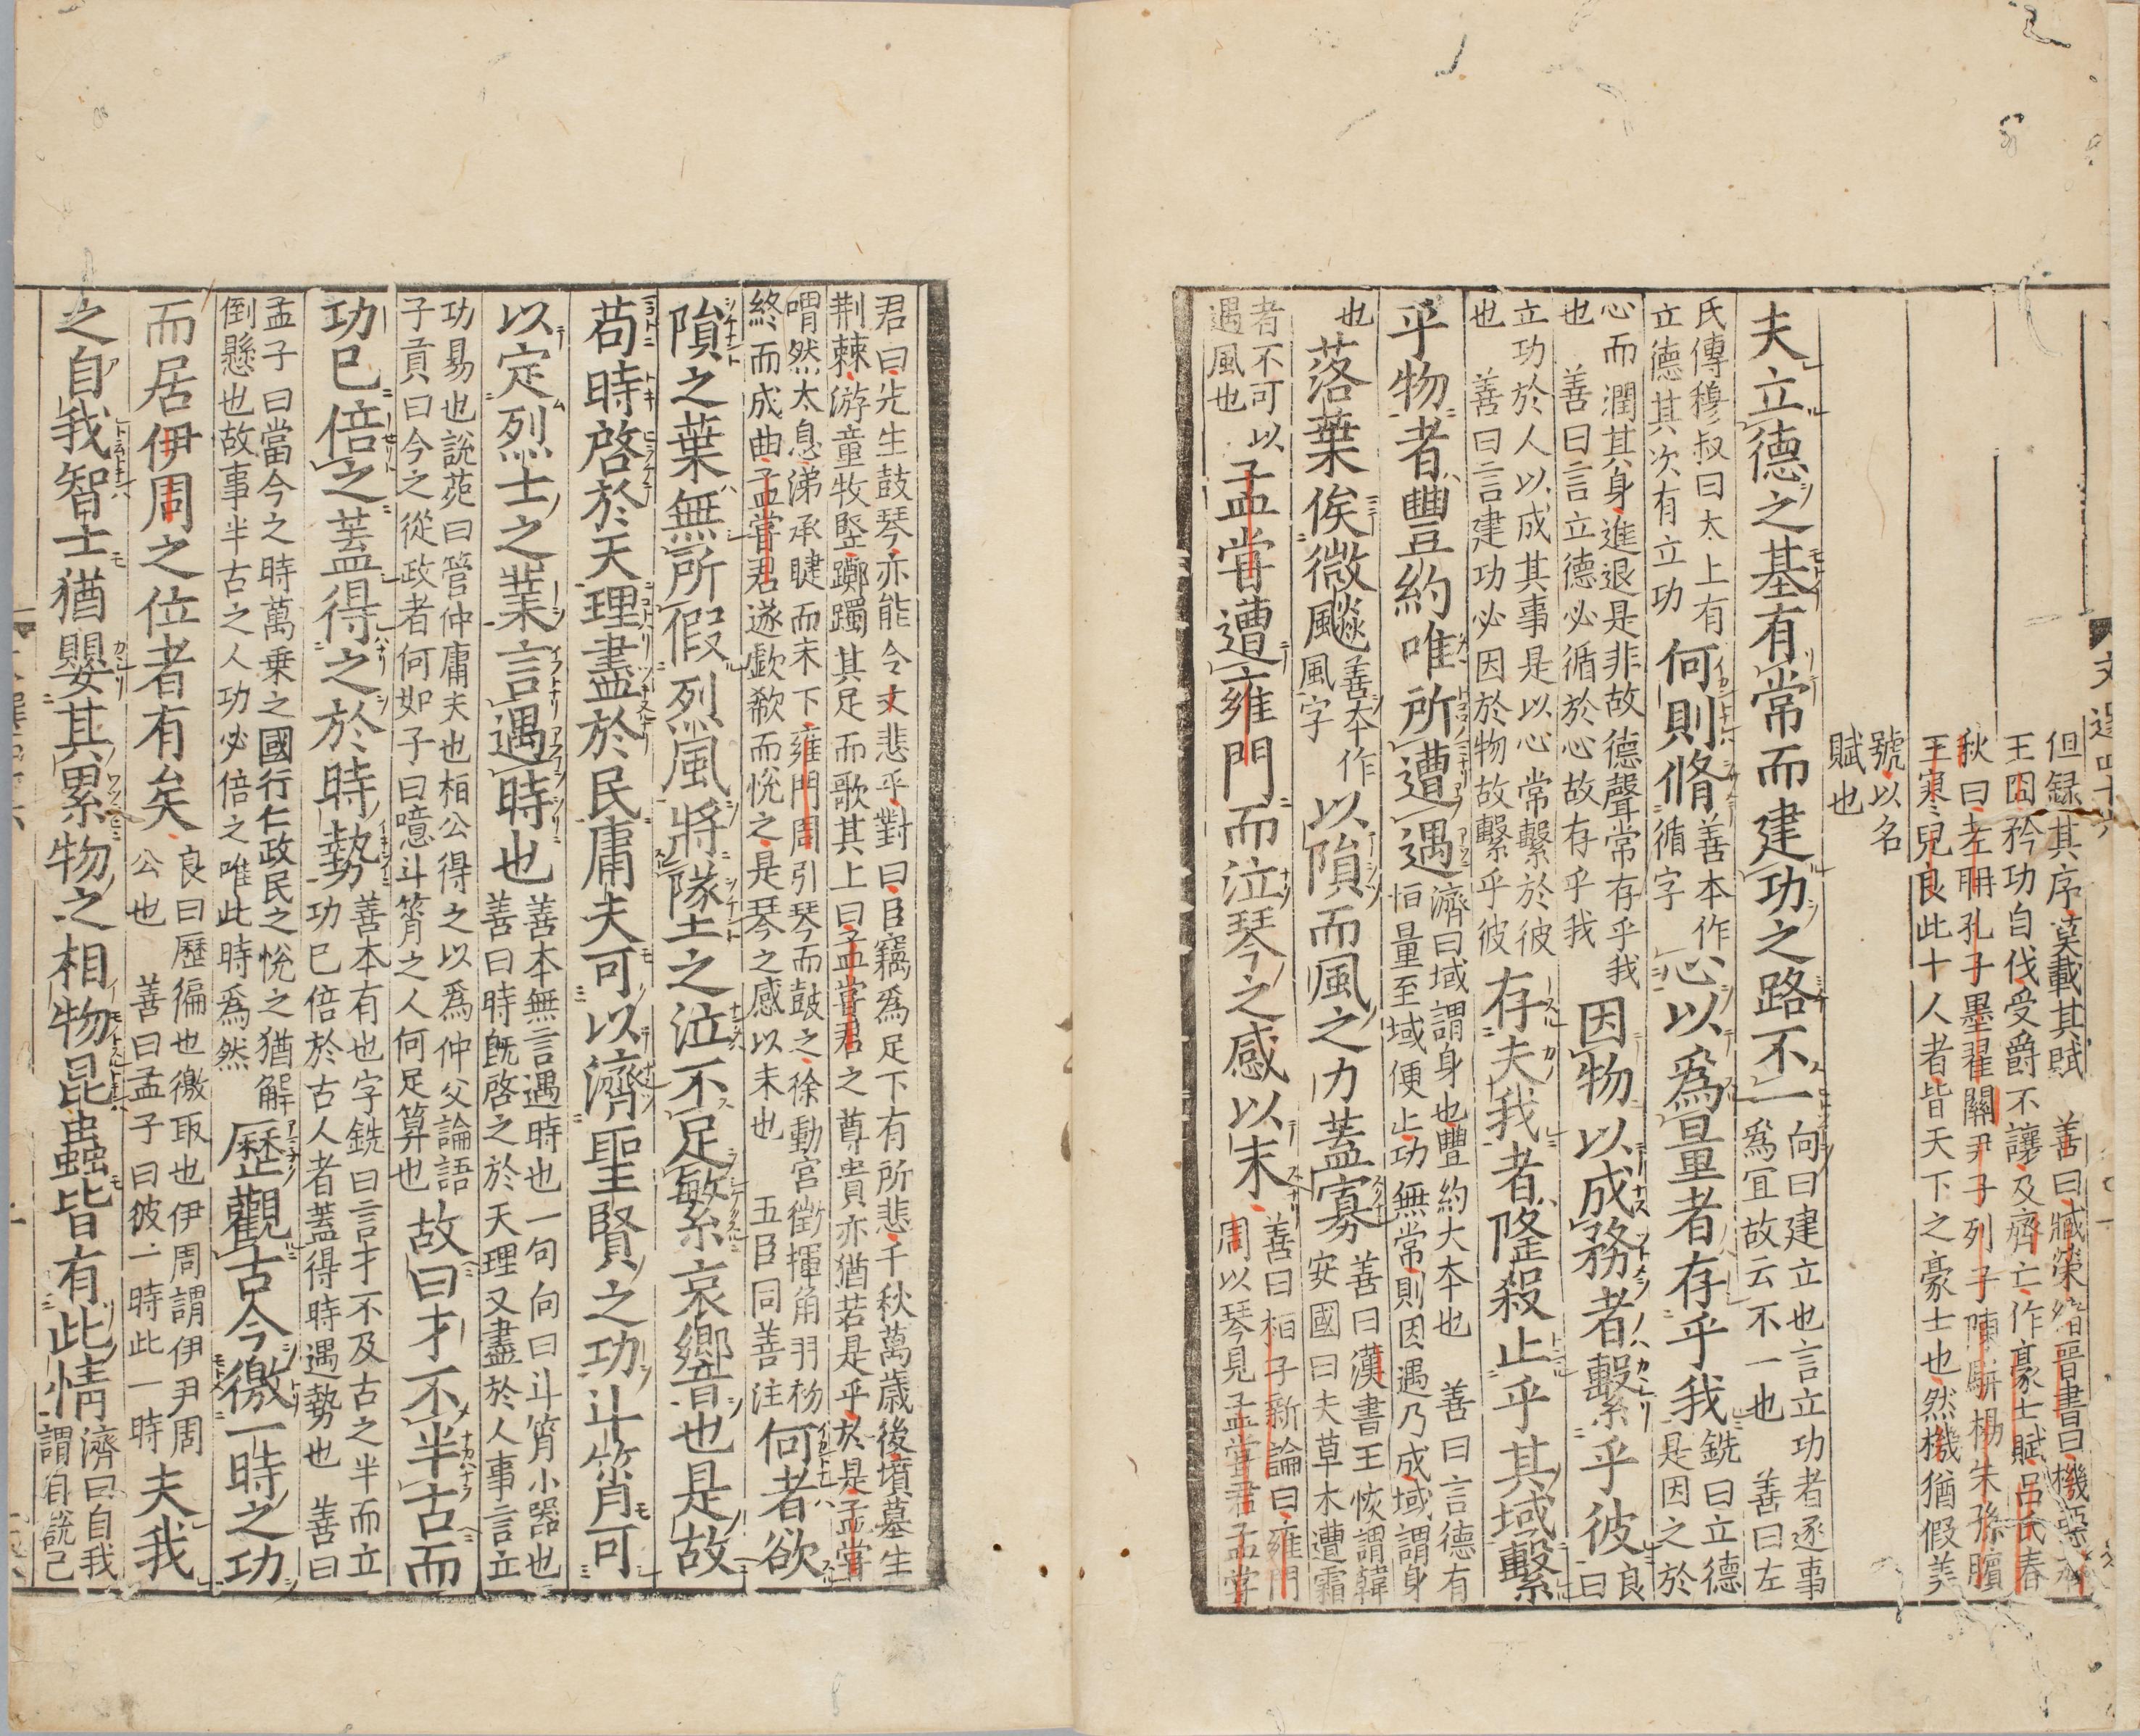 文選四十六
但録其序漠載其賦　善曰臧榮緒晉書曰機惡齊
王冏矜功自伐受爵不讓及齊亡作豪士賦呂氏春
秋曰老聃孔子墨翟關尹子列子陳駢楊朱孫臏
王寥兒良此十人者皆天下之豪士也然機猶假美
號以名
賦也
夫立德之基有常而建功之路不一
向曰建立也言立功者逐事
爲宜故云不一也　善曰左
氏傳穆叔曰太上有
立德其次有立功
何則脩
善本作
循字
心以爲量者存乎我
銑曰立德
是因之於
心而潤其身進退是非故德聲常存乎我
也　善曰言立德必循於心故存乎我
因物以成務者繫乎彼
良
曰
立功於人以成其事是以心常繫於彼
也　善曰言建功必因於物故繫乎彼
存夫我者隆殺止乎其域繫
乎物者豐約唯所遭遇
濟曰域謂身也豐約大夲也　善曰言德有
恒量至域便止功無常則因遇乃成域謂身
也
落葉俟微飈
善夲作
風字
以隕而風之力蓋寡
善曰漢書王恢謂韓
安國曰夫草木遭霜
者不可以
遇風也
孟嘗遭雍門而泣琴之感以末
善曰桓子新論曰雍門
周以琴見孟嘗君孟嘗
君曰先生鼓琴亦能令文悲乎對曰臣竊爲足下有所悲千秋萬歲後墳墓生
荆棘游童牧豎躑躅其足而歌其上曰孟嘗君之尊貴亦猶若是乎於是孟嘗
喟然太息涕承睫而未下雍門周引琴而鼓之徐動宮徵揮角羽杪
終而成曲孟嘗君遂歔欷而悅之是琴之感以末也　五臣同善注
何者欲
隕之葉無所假烈風將墜之泣不足繁哀響也是故
苟時啓於天理盡於民庸夫可以濟聖賢之功斗筲可
以定烈士之業言遇時也
善本無言遇時也一句向曰斗筲小器也
善曰時旣啓之於天理又盡於人事言立
功易也說苑曰管仲庸夫也桓公得之以爲仲父論語
子貢曰今之從政者何如子曰噫斗筲之人何足算也
故曰才不半古而
功已倍之蓋得之於時勢
善本有也字銑曰言才不及古之半而立
功巳倍於古人者蓋得時遇勢也　善曰
孟子曰當今之時萬乗之國行仁政民之悅之猶解
倒懸也故事半古之人功必倍之唯此時爲然
歷觀古今徼一時之功
而居伊周之位者有矣
良曰歷徧也徼取也伊周謂伊尹周
公也　善曰孟子曰彼一時此一時
夫我
之自我智士猶嬰其累物之相物昆蟲皆有此情
濟曰自我
謂自說己